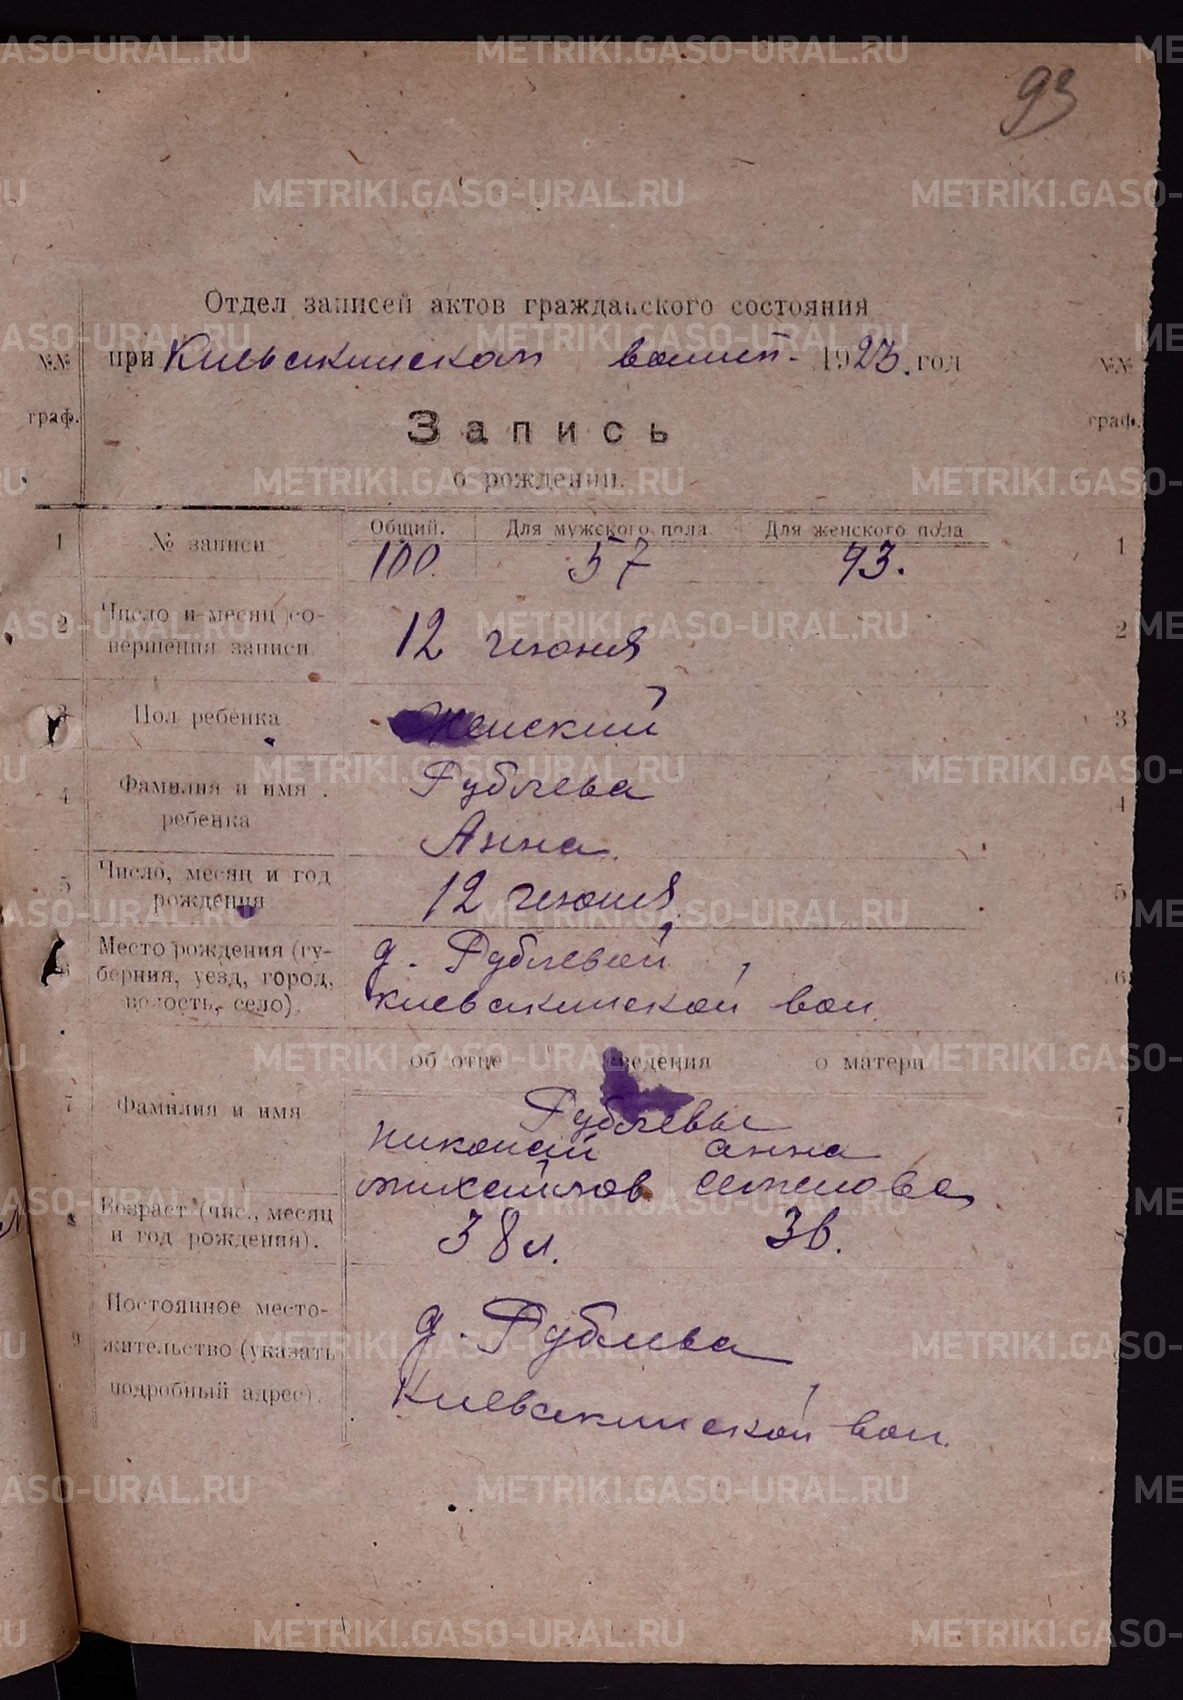 93
Отдел записей актов гражданского состояния
при Киевакинском волисп. 1923. год
№№ граф.
№№ граф.
Запись
о рождении.
1 № записи Общий. Для мужского пола Для женского пола 1
100. 57 43.
2 Число и месяц со-
вершения записи 12 июня 2
3 Пол ребенка Женский 3
4 Фамилия и имя Рублева 4
ребенка Анна.
5 Число, месяц и год
рождения 12 июня 5
6 Место рождения (гу- д. Рублевой, 6
берния, уезд, город,
волость, село). Киевакинской вол.
об отце Сведения о матери
7 Фамилия и имя Рублевы 7
Николай Анна
Михайлов Семенова
8 Возраст (чис., месяц
и год рождения). 38 л. 36. 8
Постоянное место- д. Рублева,
9 жительство (указать
подробный адрес). Киевакинской вол.
METRIKI.GASO-URAL.RU